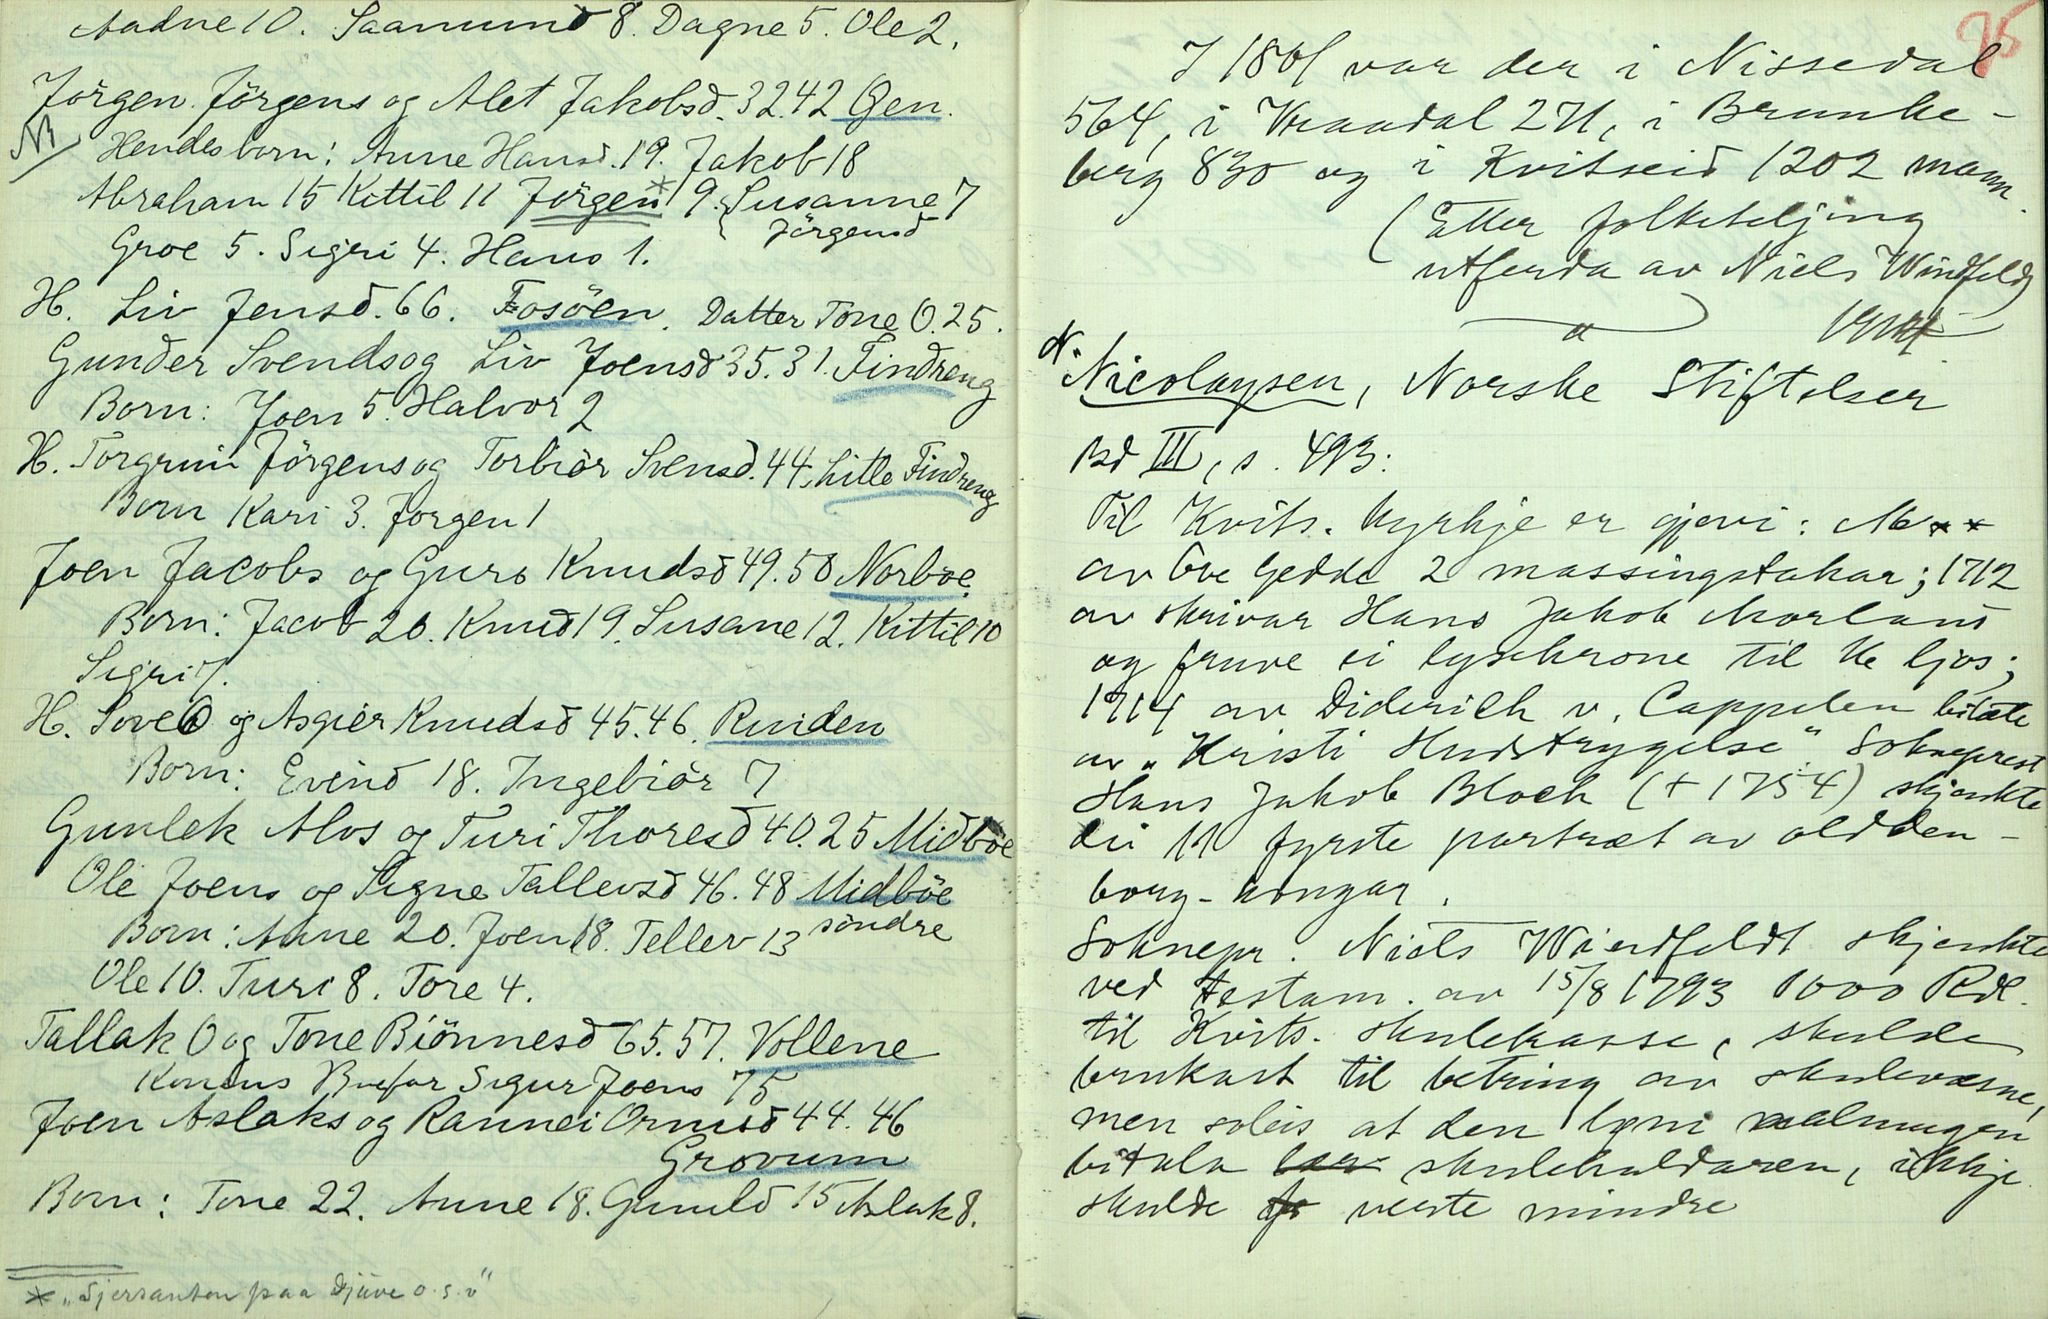 Aadne 10. Saamund 8. Dagne 5. Ole 2.
Jörgen Jörgens og Alet Jakobsd. 32.42 Gen.
NB Hendes born: Anne Hansd. 19. Jakob 18
Abraham 15 Kittil 11 Jörgen* 9. Susanne 7
Jörgensd
Groe 5. Sigri 4. Hans 1.
H. Liv Jensd. 66. Fosöen. Datter Tone O. 25.
Gunder Svends og Liv Joensd 35.31. Findreng
Born: Joen 5. Halvor 2
H. Torgrim Jörgens og Torbiör Svensd. 44. Litle Findreng
Born Kari 3. Jorgen 1
Joen Jacobs og Guro Knudsd 49.50 Norböe.
Born: Jacob 20. Knud 19. Susane 12. Kittil 10
Sigri 7.
H. Sove O og Asgier Knudsd 45.46. Ruiden
Born: Evind 18. Ingebiör 7
Gunlek Alvs og Turi Thoresd 40.25 Midböe
Ole Joens og Signe Tallevsd 46.48 Midböe
søndre
Born: Anne 20. Joen 18. Tellev 13
Ole 10. Turi 8. Tore 4.
Tallak O og Tone Biönnesd 65.57. Vollene
Konens Sigur Joens 75
Joen Aslaks og Rannei Ormsd 44.46
Grovum
Born: Tone 22. Anne 18. Gunuld 15 Aslak 8.
* „Sjersanten paa Djuve o.s.v"
75
I 1801 var der i Nissedal
564, i Vraadal 271, i Brunke-
berg 830 og i Kvitseid 1202 mann.
(Etter folketeljing
utferda av Niels Windfeldt
N. Nicolaysen, Norske Stiftelser
Bd III, s. 493:
Til Kvits. kyrkje er gjevi: M**
av Ove Gedde 2 massingstakar; 1712
av skrivar Hans Jakob Morland
og fruve ei lysekrone til 16 ljos;
1714 av Diderich v. Cappelen bilæte
av „Kristi Hudstrygelse" Sokneprest
Hans Jakob Bloch (+ 1754) skjenkte
dei 11 fyrste portræt av olden-
borg-kongar.
Soknepr. Niels Windfeldt skjenkte
ved testam. av 15/8 1793 1000 Rdl.
til Kvits. skulekasse, skulde
brukast til betring av skulevæsne,
men soleis at den lyni almugen
betala skulehaldaren, ikkje
skulde verte mindre